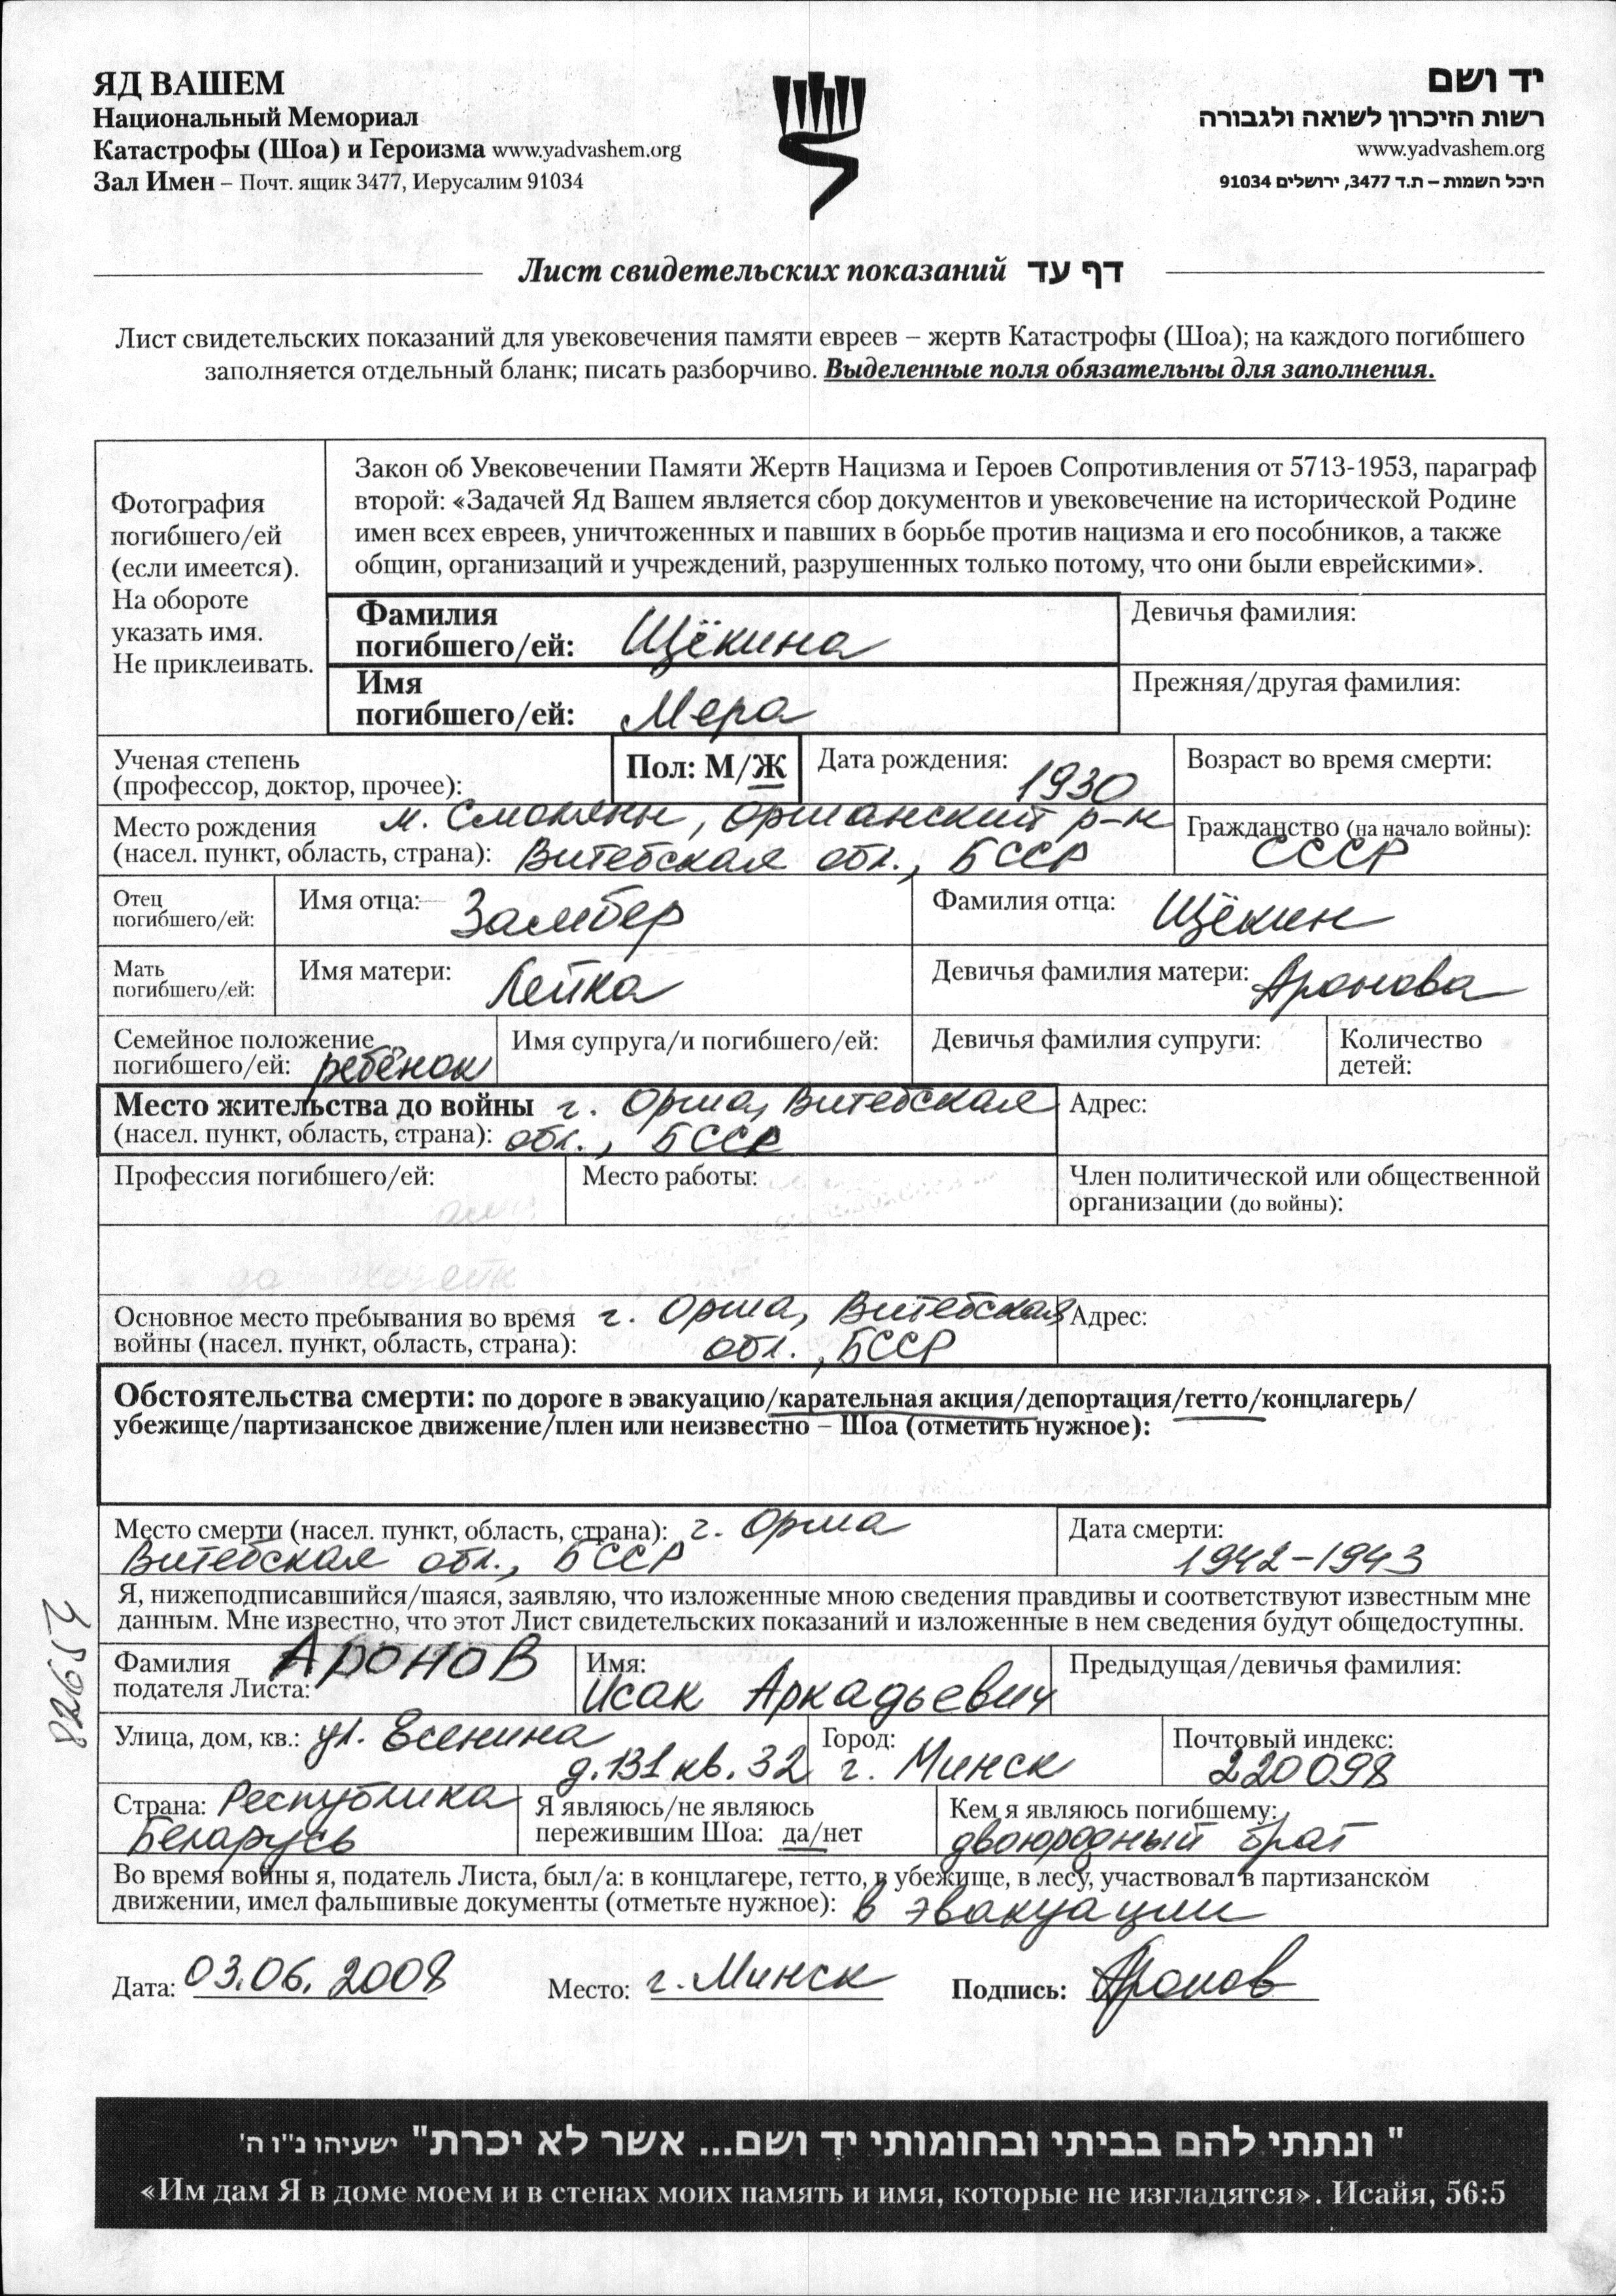 ЯД ВАШЕМ
Национальный Мемориал
Катастрофы (Шоа) и Героизма www.yadvashem.org
Зал Имен – Почт. ящик 3477, Иерусалим 91034
יד ושם
רשות הזיכרון לשואה ולגבורה
www.yadvashem.org
היכל השמות – ת.ד 3477, ירושלים 91034
Лист свидетельских показаний דף עד
Лист свидетельских показаний для увековечения памяти евреев – жертв Катастрофы (Шоа); на каждого погибшего
заполняется отдельный бланк; писать разборчиво. Выделенные поля обязательны для заполнения.
Фотография
погибшего/ей
(если имеется).
На обороте
указать имя.
Не приклеивать.
Закон об Увековечении Памяти Жертв Нацизма и Героев Сопротивления от 5713-1953, параграф
второй: «Задачей Яд Вашем является сбор документов и увековечение на исторической Родине
имен всех евреев, уничтоженных и павших в борьбе против нацизма и его пособников, а также
общин, организаций и учреждений, разрушенных только потому, что они были еврейскими».
Фамилия
погибшего/ей: Щёкина
Девичья фамилия:
Имя
погибшего/ей: Мера
Прежняя/другая фамилия:
Ученая степень
(профессор, доктор, прочее):
Пол: М/Ж
Дата рождения: 1930
Возраст во время смерти:
Место рождения м. Смоляны, Оршанский р-н
(насел. пункт, область, страна): Витебская обл., БССР
Гражданство (на начало войны):
СССР
Отец
погибшего/ей:
Имя отца: Замбер
Фамилия отца: Щёкин
Мать
погибшего/ей:
Имя матери: Лейка
Девичья фамилия матери: Аронова
Семейное положение
погибшего/ей: ребёнок
Имя супруга/и погибшего/ей:
Девичья фамилия супруги:
Количество
детей:
Место жительства до войны г. Орша, Витебская
(насел. пункт, область, страна): обл., БССР
Адрес:
Профессия погибшего/ей:
Место работы:
Член политической или общественной
организации (до войны):
Основное место пребывания во время г. Орша, Витебская
войны (насел. пункт, область, страна): обл., БССР
Адрес:
Обстоятельства смерти: по дороге в эвакуацию/карательная акция/депортация/гетто/концлагерь/
убежище/партизанское движение/плен или неизвестно – Шоа (отметить нужное):
Место смерти (насел. пункт, область, страна): г. Орша
Витебская обл., БССР
Дата смерти:
1942-1943
Я, нижеподписавшийся/шаяся, заявляю, что изложенные мною сведения правдивы и соответствуют известным мне
данным. Мне известно, что этот Лист свидетельских показаний и изложенные в нем сведения будут общедоступны.
Фамилия
подателя Листа: Аронов
Имя:
Исак Аркадьевич
Предыдущая/девичья фамилия:
Улица, дом, кв.: ул. Есенина
д.131 кв. 32
Город:
г. Минск
Почтовый индекс:
220098
Страна: Республика
Беларусь
Я являюсь/не являюсь
пережившим Шоа: да/нет
Кем я являюсь погибшему:
двоюродный брат
Во время войны я, податель Листа, был/а: в концлагере, гетто, в убежище, в лесу, участвовал в партизанском
движении, имел фальшивые документы (отметьте нужное): в эвакуации
Дата: 03.06.2008 Место: г. Минск Подпись: Аронов
" ונתתי להם בביתי ובחומותי יד ושם... אשר לא יכרת" ישעיהו נ"ו ה'
«Им дам Я в доме моем и в стенах моих память и имя, которые не изгладятся». Исайя, 56:5